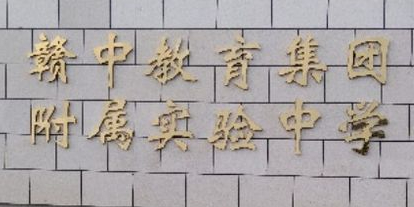 赣中教育集团
附属实验中学